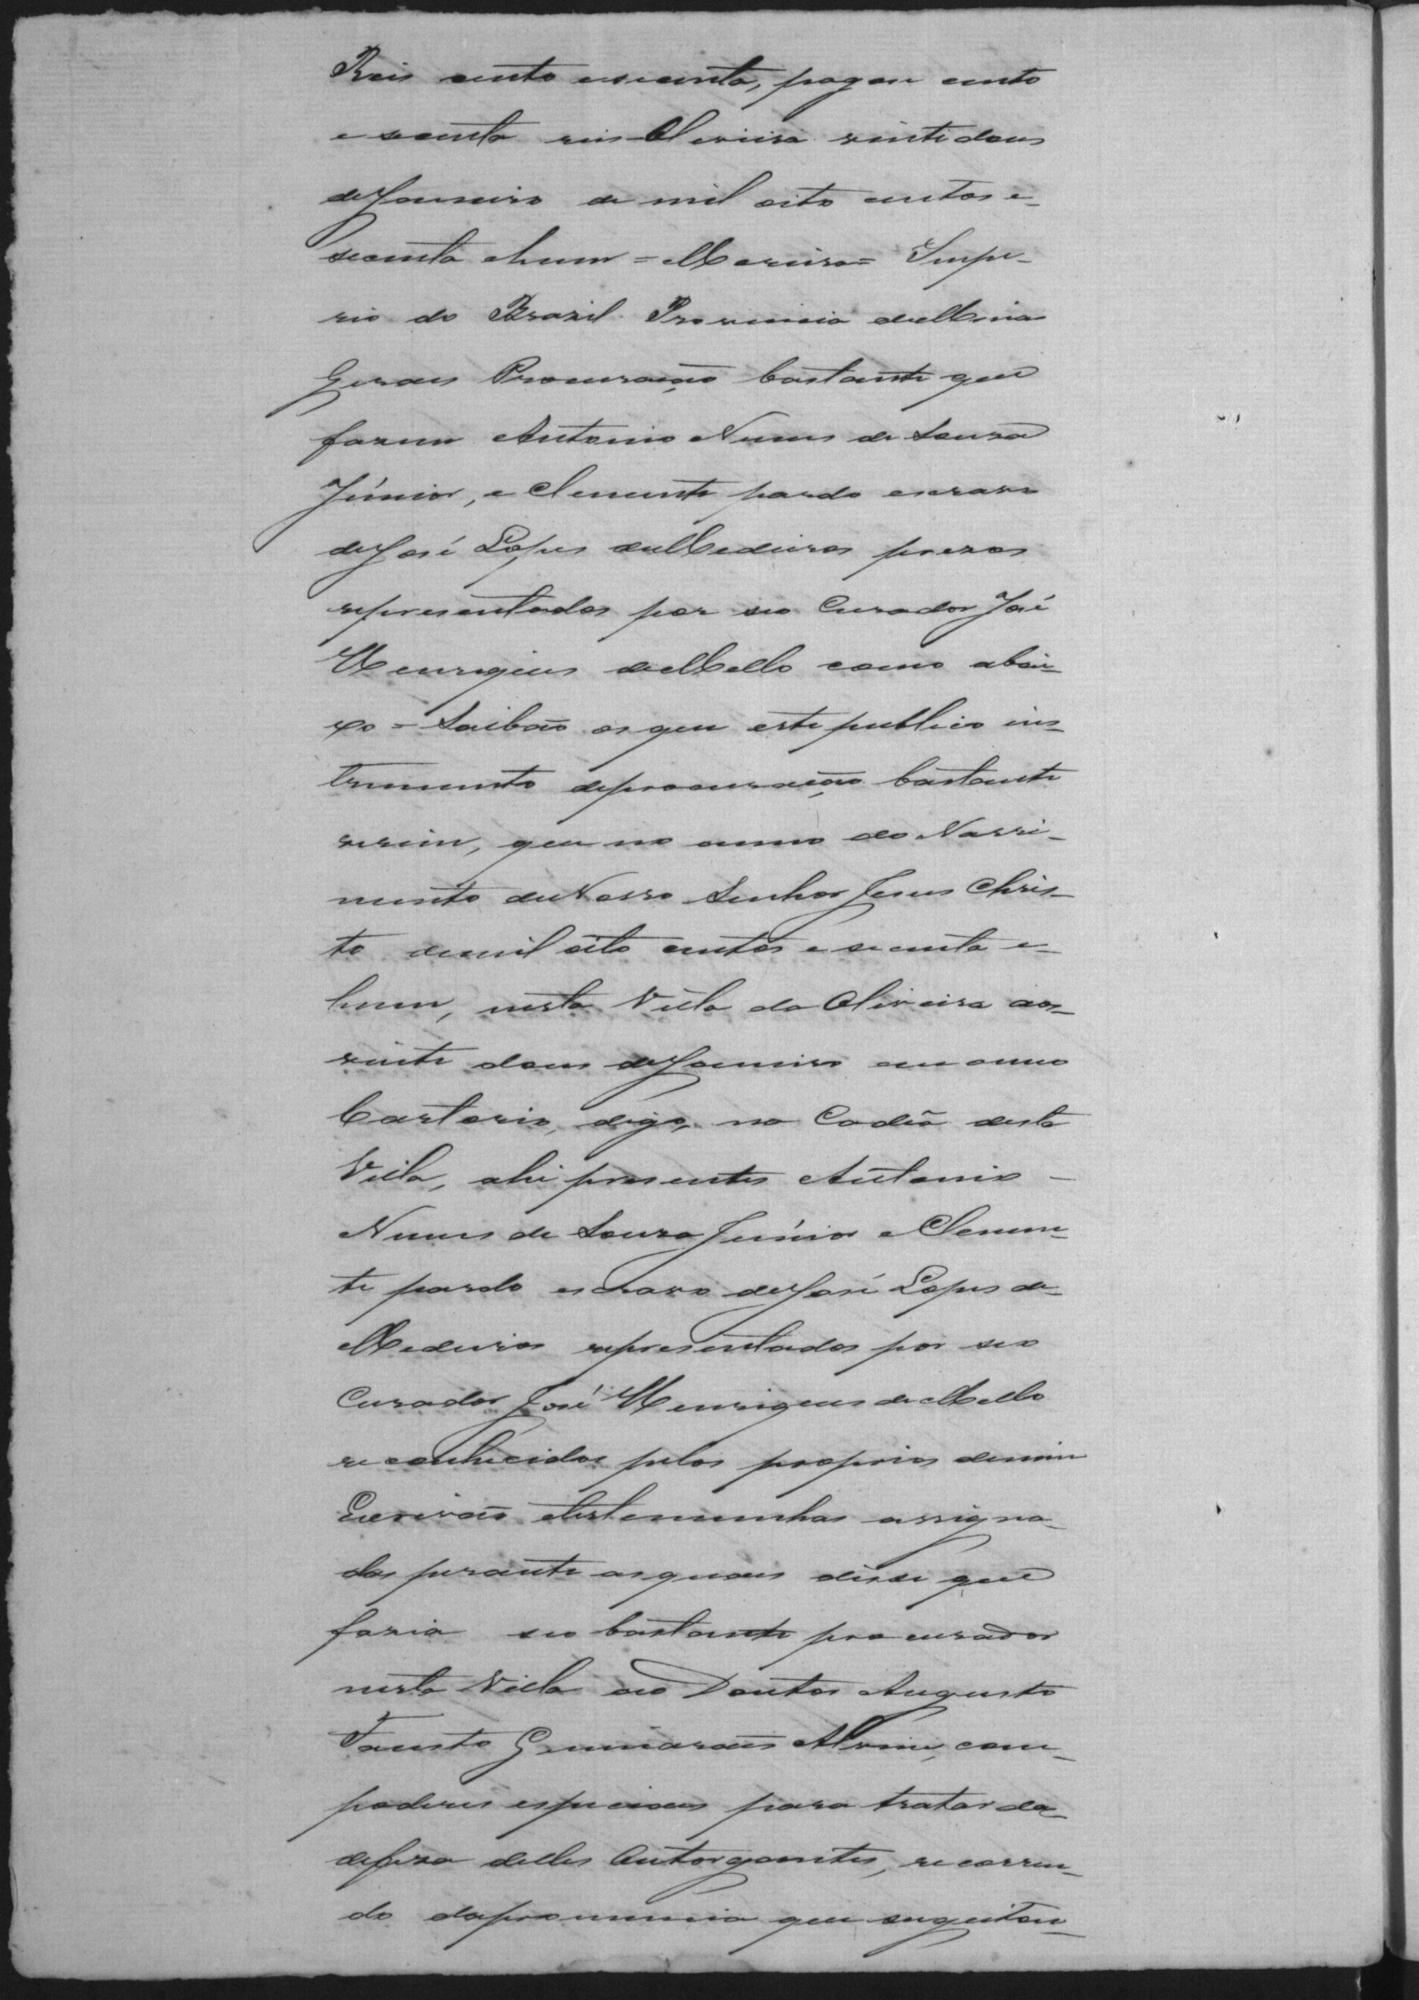 Reis cento esecenta, pagou cento
e secenta reis Oliveira vinte dous
de Janeiro de mil oito centos e
secenta ehum = Moreira = Impe-
rio do Brazil. Provincia de Minas
Geraes Procuração bastante que
fazem Antonio Nunes de Souza
Júnior, e Clemente pardo escravo
de José Lopes de Medeiros prezos
representados por seo Curador José
Henriques de Mello como abai-
xo = Saibão os que este publico ins-
trumento deprocuração bastante
virem, que no anno do Nassi-
mento de Nosso Senhor Jesus Chris-
to demil oito centos e secenta e
hum, nesta Villa da Oliveira aos
vinte dous de Janeiro em o meo
Cartorio, digo, na Cadêa desta
Villa, ahi presentes Antonio
Nunes de Souza Júnior e Clemen-
te pardo escravo de José Lopes de
Medeiros representados por seo
Curador José Henriques de Mello
reconhecidos pelos proprios de mim
Escrivão etestemunhas assigna-
das perante as quaes disse que
fazia seo bastante procurador
nesta Villa ao Doutor Augusto
Fausto Guimarães Alvim, com
poderes especiaes para tratar da
defeza delles Outorgantes, recorren-
do dapronuncia que sugeitou